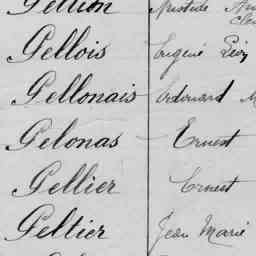 Pellion Aristide
Pellois Eugène Léon
Pellonais Edouard
Pelonas Ernest
Pellier Ernest
Peltier Jean Marie